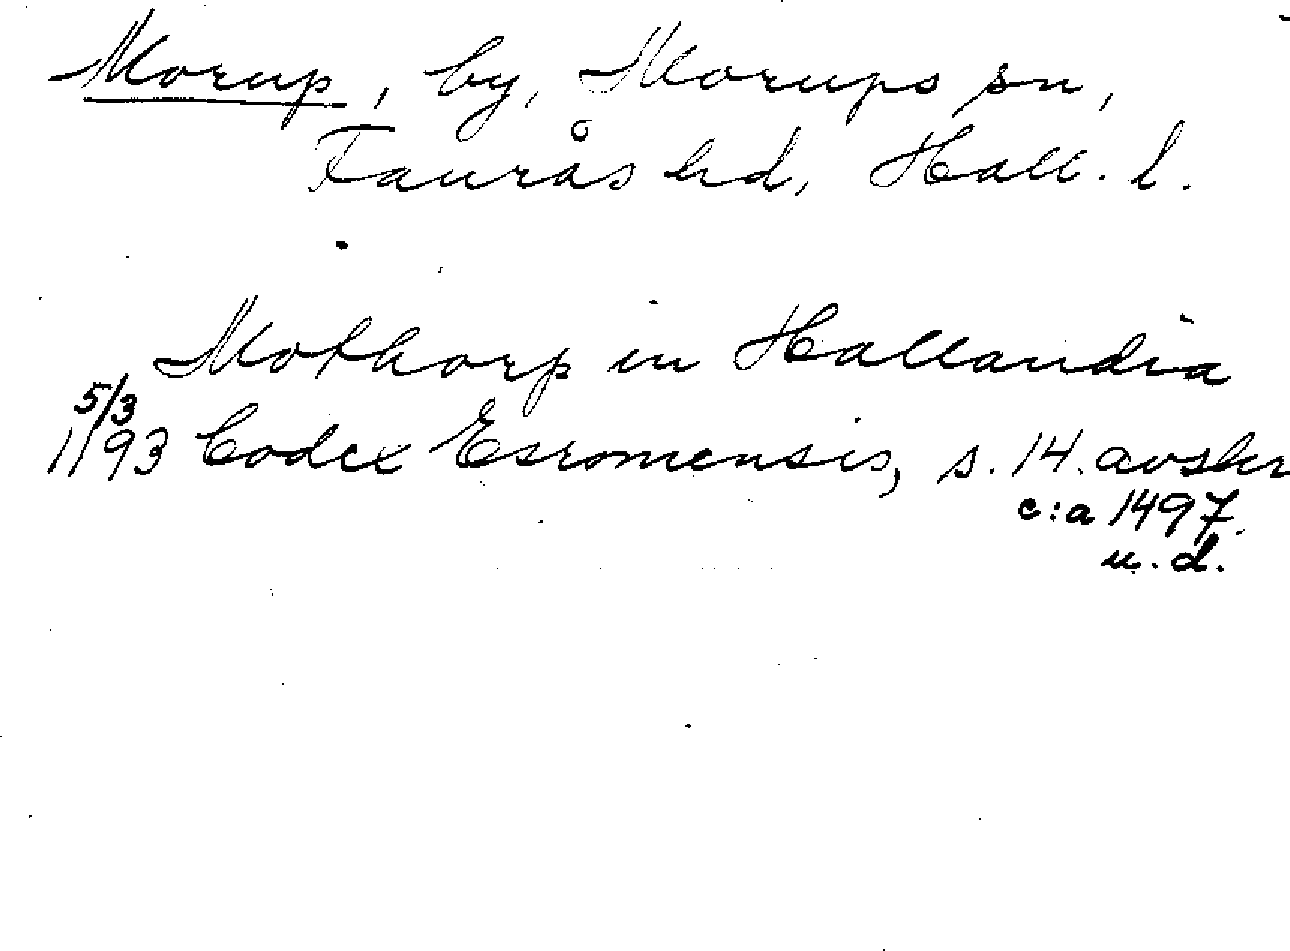 Morup, by, Morups sn,
Faurås hd, Hall. l.
Mothorp in Hallandia
5/3
1193 Codex Esromensis, s. 14. avskr
c:a 1497.
u.d.